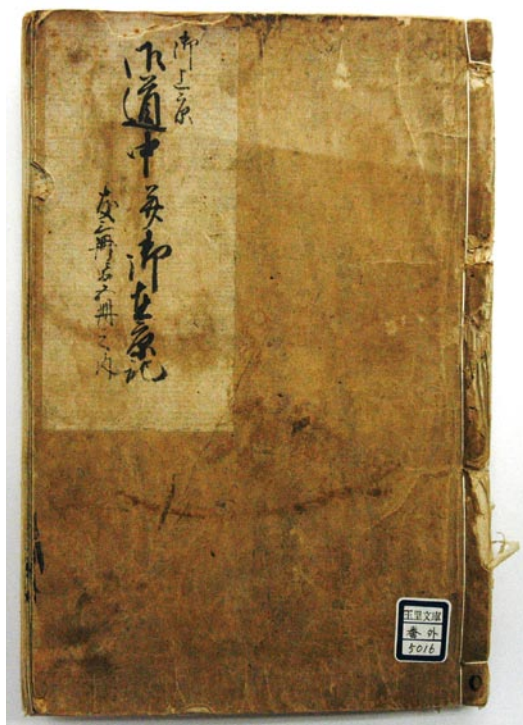 御上京
御道中并御在京記
冊
冊之内
玉里文庫
番外
5016